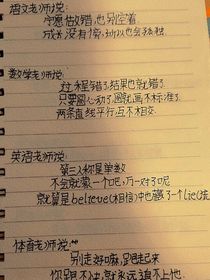 语文老师说:
宁愿做错,也别空着
成长没有偿,所以也会孤独
数学老师说:
过程错了,结果也就错了
只要圆心动了,圆就画不标准了
两条直线平行,互不相交.
英语老师说:
第三人称是单数
不会就蒙一个吧,万一对了呢
就算是believe(相信)中也藏了一个lie(谎
体育老师说:
别走好嘛,跑起来
你跟不上,就永远追不上他.